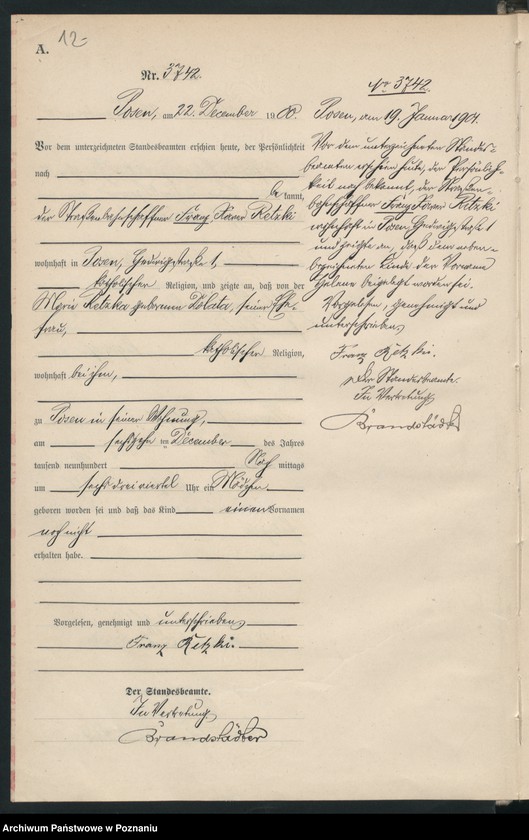 A.
12
Nr. 3742.
Posen, am 22. December 1900.
Vor dem unterzeichneten Standesbeamten erschien heute, der Persönlichkeit
nach
bekannt,
der Straßenbahnschaffner Franz Xaver Retzki
wohnhaft in Posen, Hedwigstraße 1,
katholischer Religion, und zeigte an, daß von der
Marie Retzka geborenen, seiner Ehe-
frau,
katholischer Religion,
wohnhaft bei ihm,
zu Posen in seiner Wohnung,
am sechszehn ten December des Jahres
tausend neunhundert Nach mittags
um sechs dreiviertel Uhr ein Mädchen
geboren worden sei und daß das Kind einen Vornamen
noch nicht
erhalten habe.
Vorgelesen, genehmigt und unterschrieben
Franz Retzki.
Der Standesbeamte.
In Vertretung
Brandstädter
No 3742.
Posen, am 19. Januar 1901.
Vor dem unterzeichneten Standes-
beamten erschien heute, der Persönlich-
keit nach bekannt, der Straßen-
bahnschaffner Franz Xaver Retzki
wohnhaft in Posen Hedwigstraße 1
und zeigte an, daß dem neben-
bezeichneten Kinde der Vorname
Helene beigelegt worden sei.
Vorgelesen, genehmigt und
unterschrieben
Franz Retzki.
Der Standesbeamte.
In Vertretung
Brandstädter
Archiwum Państwowe w Poznaniu